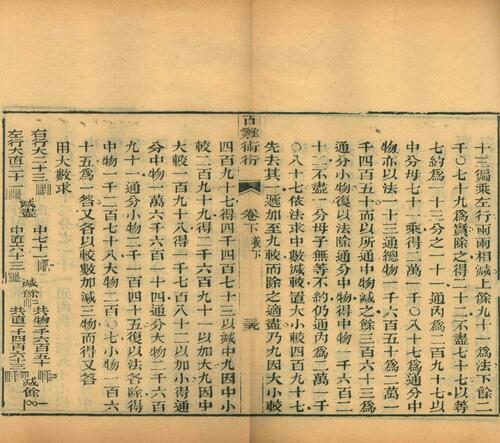 十三徧乘左行兩兩相減上餘九十一爲法下餘二
千〇七十九爲實除之得二十二不盡七十七以等
七約爲一十三分之一十一通內爲二百九十七以
中分母七十一乘得二萬一千〇八十七以法通分中
物亦以法一十三通總物一千六百五十爲二萬一
千四百五十而以所通中物減之餘三百六十三爲
通分小物復以法除通分中物得中物一千六百二
十二不盡一分母子無等不約仍通內爲二萬一千
〇八十七依法求中數減較置大小較四百九十七
先去其一遞加至九較而除之適盡乃九因大小較
四百九十七得四千四百七十三以減中九因中小
較二百九十九得二千六百九十一以加大九因中
大較一百九十八得一千七百八十二以加小得通
分中物一萬六千六百一十四通分大物二千六百
九十一通分小物二千一百四十五復以法各除得
中物一千二百七十八大物二百〇七小物一百六
十五爲一答又各以較數加減三物而得又答
用大數求
右行大二十三 中七十一 共物千六百五十
減盡 減餘 減餘
左行大直二十 中直六十三 共直一千四百六十三
百雞術衍
卷下 衍下